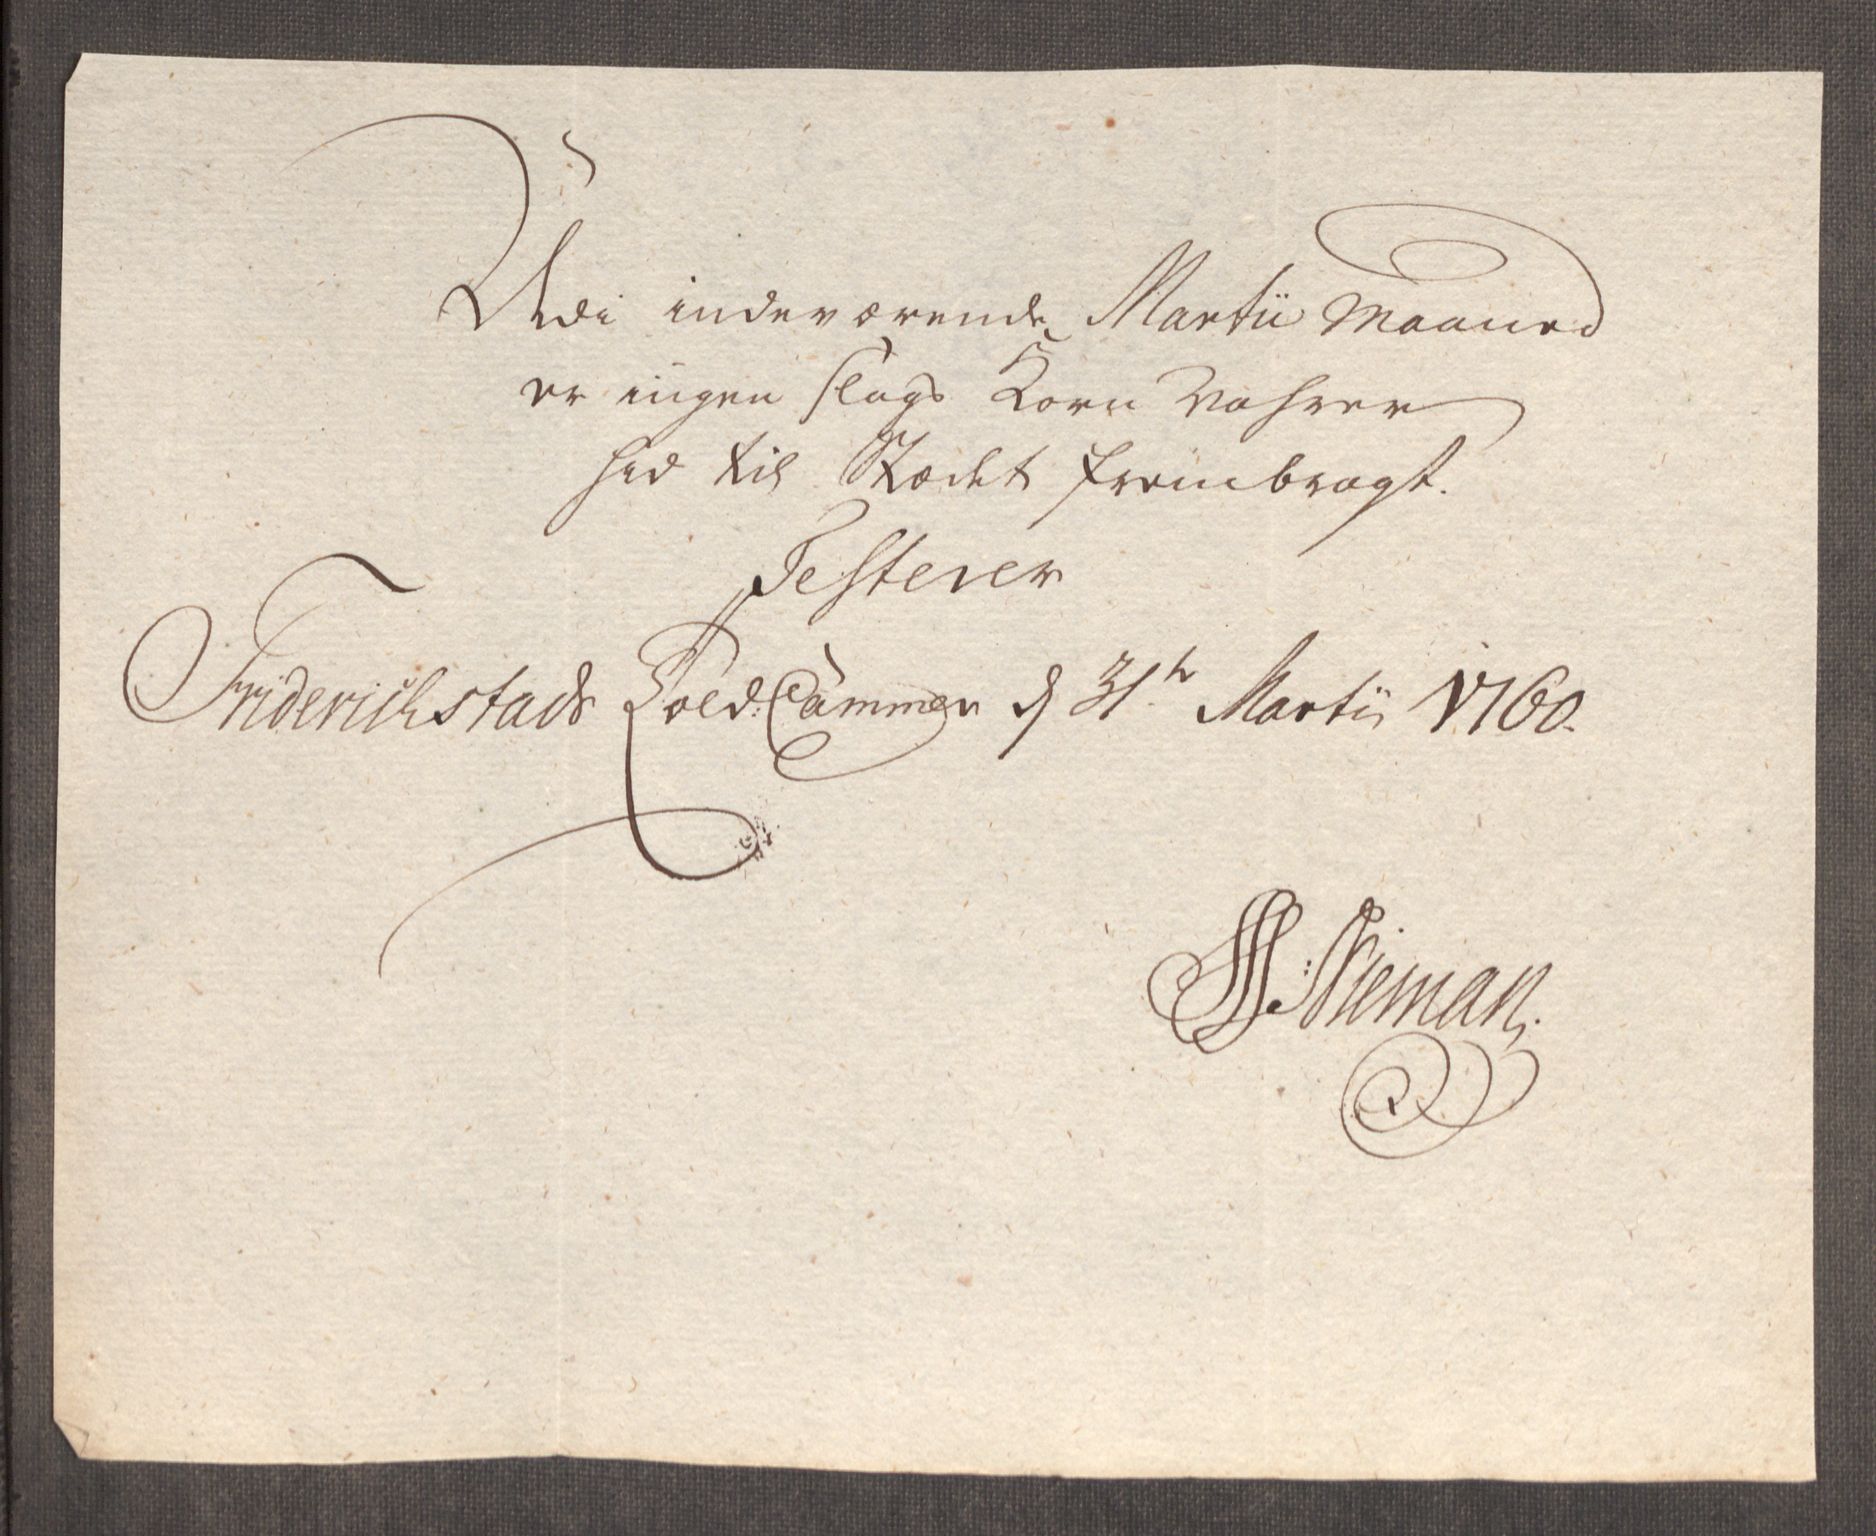 Udi indeværende Martii Maaned
er ingen slags Korn Vahrer
hid til Stædet frembragt.
Testerer
Friderichstads Told-Cammer d 31te Martii 1760.
Nieman.